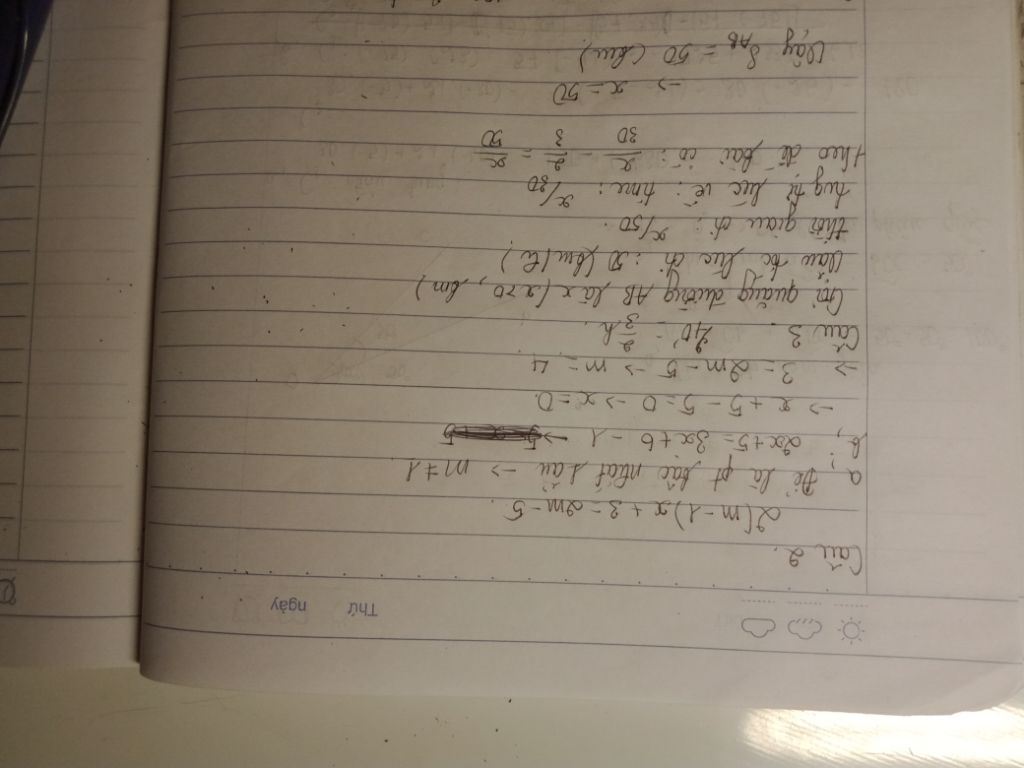 Thứ ngày
Câu 2.
2(m-1)x + 3 = 2m-5.
a, Để là pt bậc nhất 1 ẩn → m ≠ 1
b, 2x+5 = 3x+6 - 1 →
→ x + 5 - 5 = 0 → x = 0.
→ 3 = 2m - 5 → m = 4
Câu 3. 40' = 2/3 h.
Gọi quãng đường AB là x (x>0, km)
Vận tốc lúc đi: 50 (km/h)
thời gian đi: x/50.
lúc về: time: x/30
theo đề bài có: x/30 - 2/3 = x/50
→ x = 50
Vậy S AB = 50 (km)